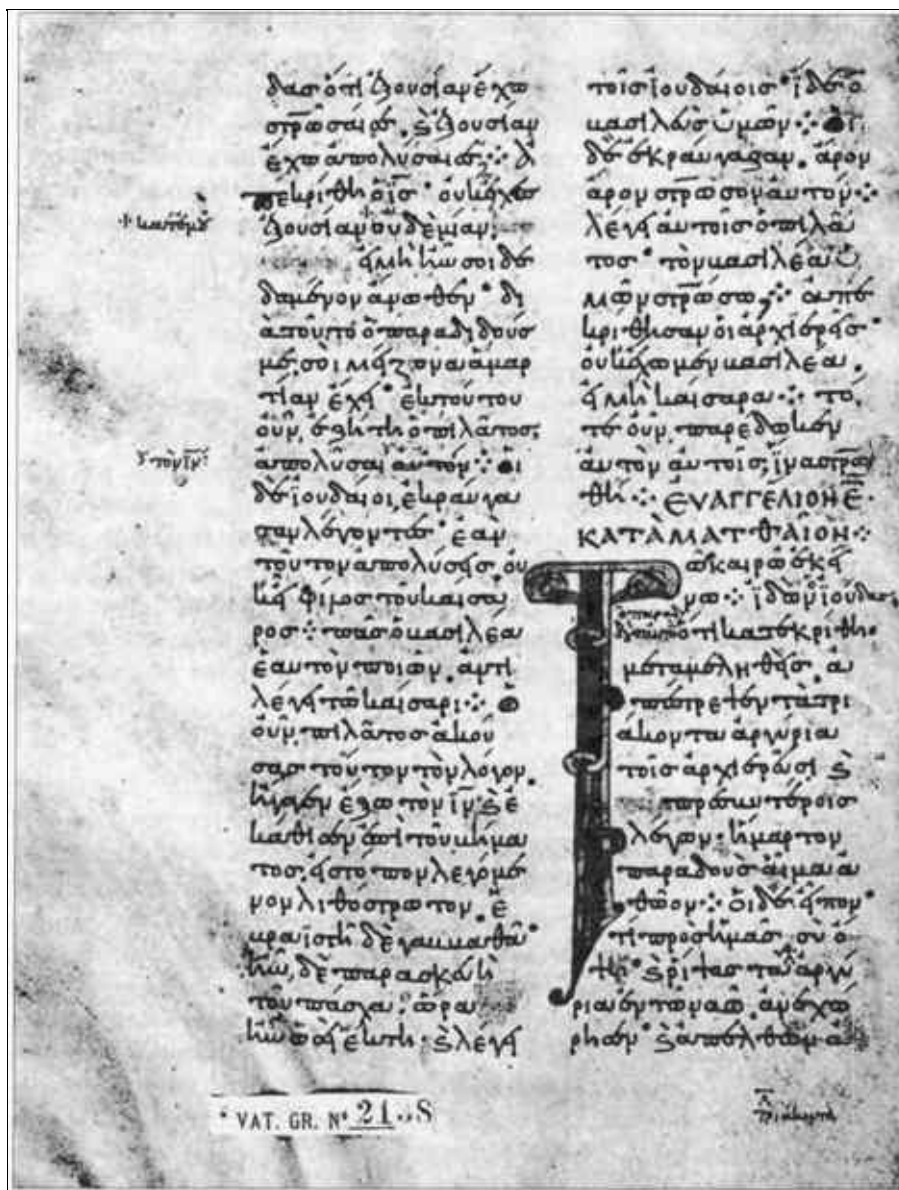 δας ὅτι ἐξουσίαν ἔχω
στρῶσαί σε, ϗ ἐξουσίαν
ἔχω ἀπολῦσαί σε ⁘ ἀ
πεκρίθη ὁ ι̅ς̅· οὐκ ἔχεις
ἐξουσίαν οὐδεμίαν
εἰ μὴ ἦν σοι δε
δομένον ἄνωθεν· δι
ὰ τοῦτο ὁ παραδιδούς
μέ, σοὶ μείζονα ἁμαρ
τίαν ἔχει· ἐκ τούτου
οὖν, ἐζήτει ὁ πιλᾶτος,
ἀπολῦσαι αὐτόν ⁘ οἱ
δὲ ἰουδαῖοι, ἐκραύγα
ζαν λέγοντες· ἐὰν
τοῦτον ἀπολύσεις οὐ
κ εἶ φίλος τοῦ καίσα
ρος ⁘ πᾶς ὁ βασιλέα
ἑαυτὸν ποιῶν, ἀντι
λέγει τῶ καίσαρι ⁘ ὁ
οὖν πιλᾶτος ἀκού
σας τοῦτον τὸν λόγον,
ἤγαγεν ἔξω τὸν ι̅ν̅ ϗ ἐ
κάθισεν ἐπὶ τοῦ βήμα
τος, εἰς τόπον λεγόμε
νον λιθόστρωτον, ἑ
βραϊστὶ δὲ γαββαθᾶ·
ἦν δὲ παρασκευὴ
τοῦ πάσχα, ὥρα
ἦν ὡσεὶ ἕκτη· ϗ λέγει
τὸν ι̅ν̅
τοῖς ἰουδαίοις· ἴδε ὁ
βασιλεὺς ὑμῶν ⁘ οἱ
δὲ ἐκραύγαζαν, ἆρον
ἆρον στρωσον αὐτόν ⁘
λέγει αὐτοῖς ὁ πιλᾶ
τος· τὸν βασιλέα ὑ
μῶν στρώσω; ⁘ ἀπε
κρίθησαν οἱ ἀρχιερεῖς·
οὐκ ἔχωμεν βασιλέα,
εἰ μὴ καίσαρα ⁘ τό
τε οὖν, παρέδωκεν
αὐτὸν αὐτοῖς, ἵνα στρω
θῆ ⁘ ΕΥΑΓΓΕΛΙΟΝ Ε·
ΚΑΤᾺ ΜΑΤΘΑΙΟΝ ⁘
Τῶ καιρῶ ἐκεί
νω ⁘ ἰδὼν ἰούδας
ὅτι κατεκρίθη,
μεταμεληθεὶς ἀ
πέστρεψεν τὰ τρι
άκοντα ἀργύρια
τοῖς ἀρχιερεῦσι ϗ
πρεσβυτέροις
λέγων· ἥμαρτον
παραδοὺς αἷμα ἀ
θῶον ⁘ οἱ δὲ εἶπον·
τί πρὸς ἡμᾶς σὺ ὄ
ψη· ϗ ῥίψας τὰ ἀργύ
ρια ἐν τῶ ναῶ, ἀνεχώ
ρησεν· ϗ ἀπελθὼν ἀ
VAT. GR. Nº 21